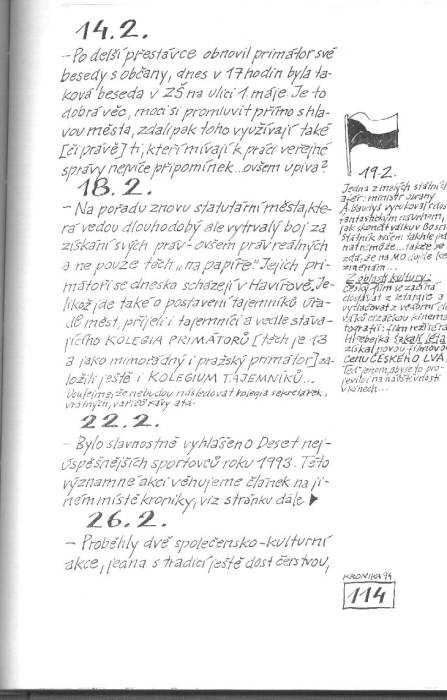 14.2.
- Po delší přestávce obnovil primátor své
besedy s občany, dnes v 17 hodin byla ta-
ková beseda v ZŠ na ulici 1. máje. Je to
dobrá věc, moci si promluvit přímo s hla-
vou města, zdalipak toho využívají také
[či právě] ti, kteří mívají k práci veřejné
správy nejvíce připomínek... ovšem u piva?
18.2.
- Na pořadu znovu statutární města, kte-
rá vedou dlouhodobý ale vytrvalý boj za
získání svých práv - ovšem práv reálných
a ne pouze těch "na papíře". Jejich pri-
mátoři se dneska scházejí v Havířově. Je-
likož jde také o postavení tajemníků úřa-
dů měst, přijeli i tajemníci a vedle stáva-
jícího KOLEGIA PRIMÁTORŮ [těch je 13
a jako mimořádný i pražský primátor] za-
ložili ještě i KOLEGIUM TAJEMNÍKŮ...
Doufejme, že nebudou následovat kolegia sekretářek,
vrátných, vařičů kávy atd.
22.2.
- Bylo slavnostně vyhlášeno Deset nej-
úspěšnějších sportovců roku 1993. Této
významné akci věnujeme článek na ji-
ném místě kroniky, viz stránku dále ▶
26.2.
- Proběhly dvě společensko-kulturní
akce, jedna s tradicí ještě dost čerstvou,
19.2.
Jedna z malých státnic
afér: ministr obrany
A. Baudyš vyrukoval s dost
fantastickým návrhem,
jak skončit válku v Bosně
Státník ovšem takhle jed-
nat nemůže... takže se
zdá, že na MO dojde ke
změnám...
Z oblasti kultury:
český film se začíná
dostávat z letargie a
vytlačovat z
cizáckou kinema-
tografii: film režiséra
Hřebejka Šakalí léta
získal novou filmovou
cenu ČESKÉHO LVA.
Teď jenom, aby se to pro-
jevilo i na návštěvnosti
v kinech...
KRONIKA 94
114